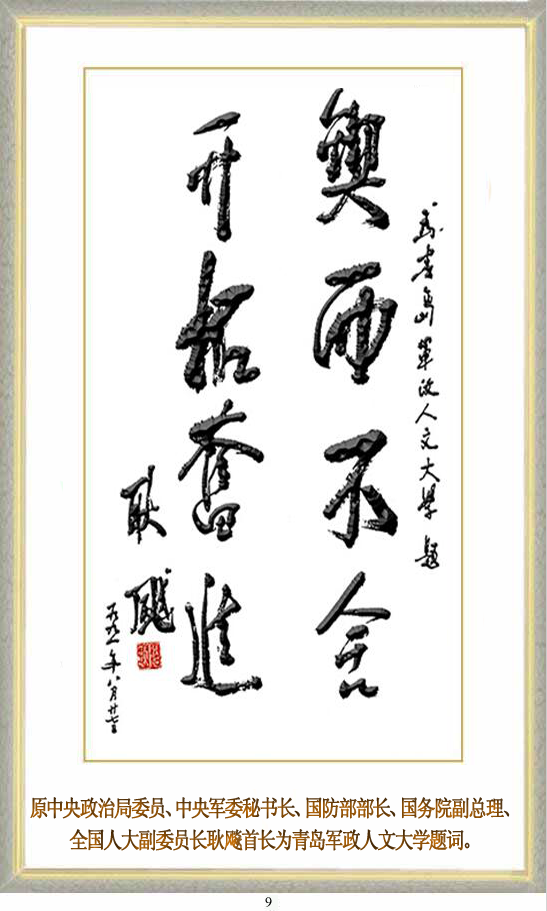 为青岛軍政人文大學題
鍥而不舍
开拓奮進
耿飚
一九九一年八月廿
原中央政治局委员、中央军委秘书长、国防部部长、国务院副总理、
全国人大副委员长耿飚首长为青岛军政人文大学题词。
9